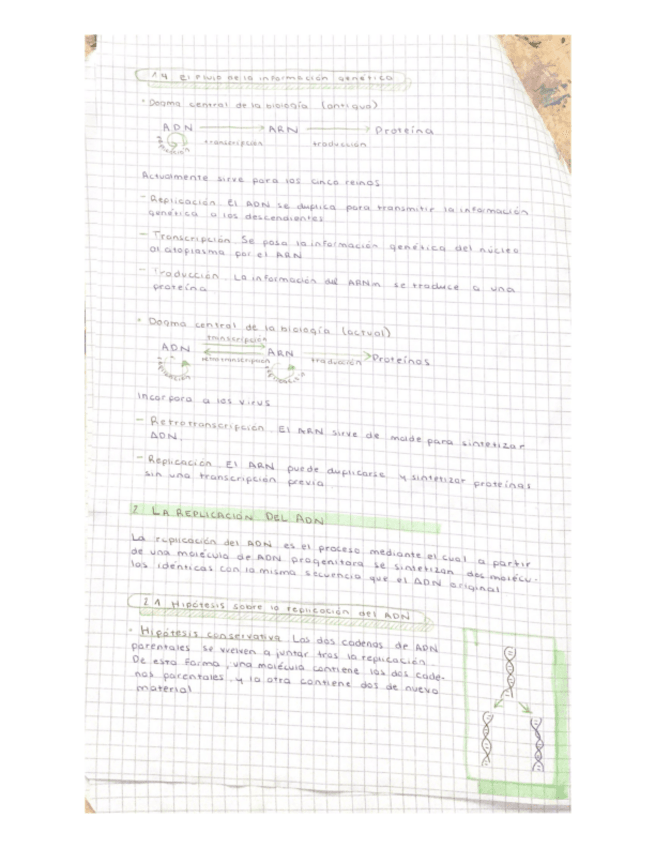 1.4 El flujo de la información genética
· Dogma central de la biología (antiguo)
ADN → ARN → Proteína
replicación transcripción traducción
Actualmente sirve para los cinco reinos
- Replicación. El ADN se duplica para transmitir la información
genética a los descendientes
- Transcripción. Se pasa la información genética del núcleo
al citoplasma por el ARN
- Traducción. La información del ARNm se traduce a una
proteína
· Dogma central de la biología (actual)
transcripción
ADN ARN → Proteínas
retrotranscripción traducción
replicación replicación
Incorpora a los virus
- Retrotranscripción. El ARN sirve de molde para sintetizar
ADN.
- Replicación. El ARN puede duplicarse y sintetizar proteínas
sin una transcripción previa
2 LA REPLICACIÓN DEL ADN
La replicación del ADN es el proceso mediante el cual a partir
de una molécula de ADN progenitora se sintetizan dos molécu-
las idénticas con la misma secuencia que el ADN original
2.1 Hipótesis sobre la replicación del ADN
· Hipótesis conservativa. Las dos cadenas de ADN
parentales se vuelven a juntar tras la replicación
De esta forma, una molécula contiene las dos cade-
nas parentales, y la otra contiene dos de nuevo
material